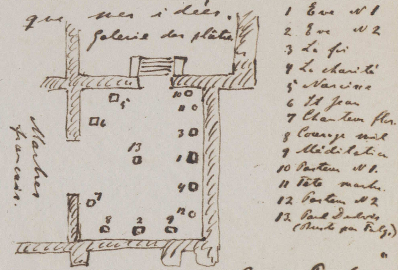 que mes idées.
Galerie des plâtres
Marbres
français.
10
11
5
6
3
13
1
4
7
12
8
2
9
1 Eve N1
2 Eve N2
3 La foi
4 La charité
5 Narcisse
6 St Jean
7 Chanteur flor.
8 Courage mil
9 Méditation
10 Pasteur N1.
11 Tête marbre.
12 Pasteur N2
13 Paul Dubois
(Buste par